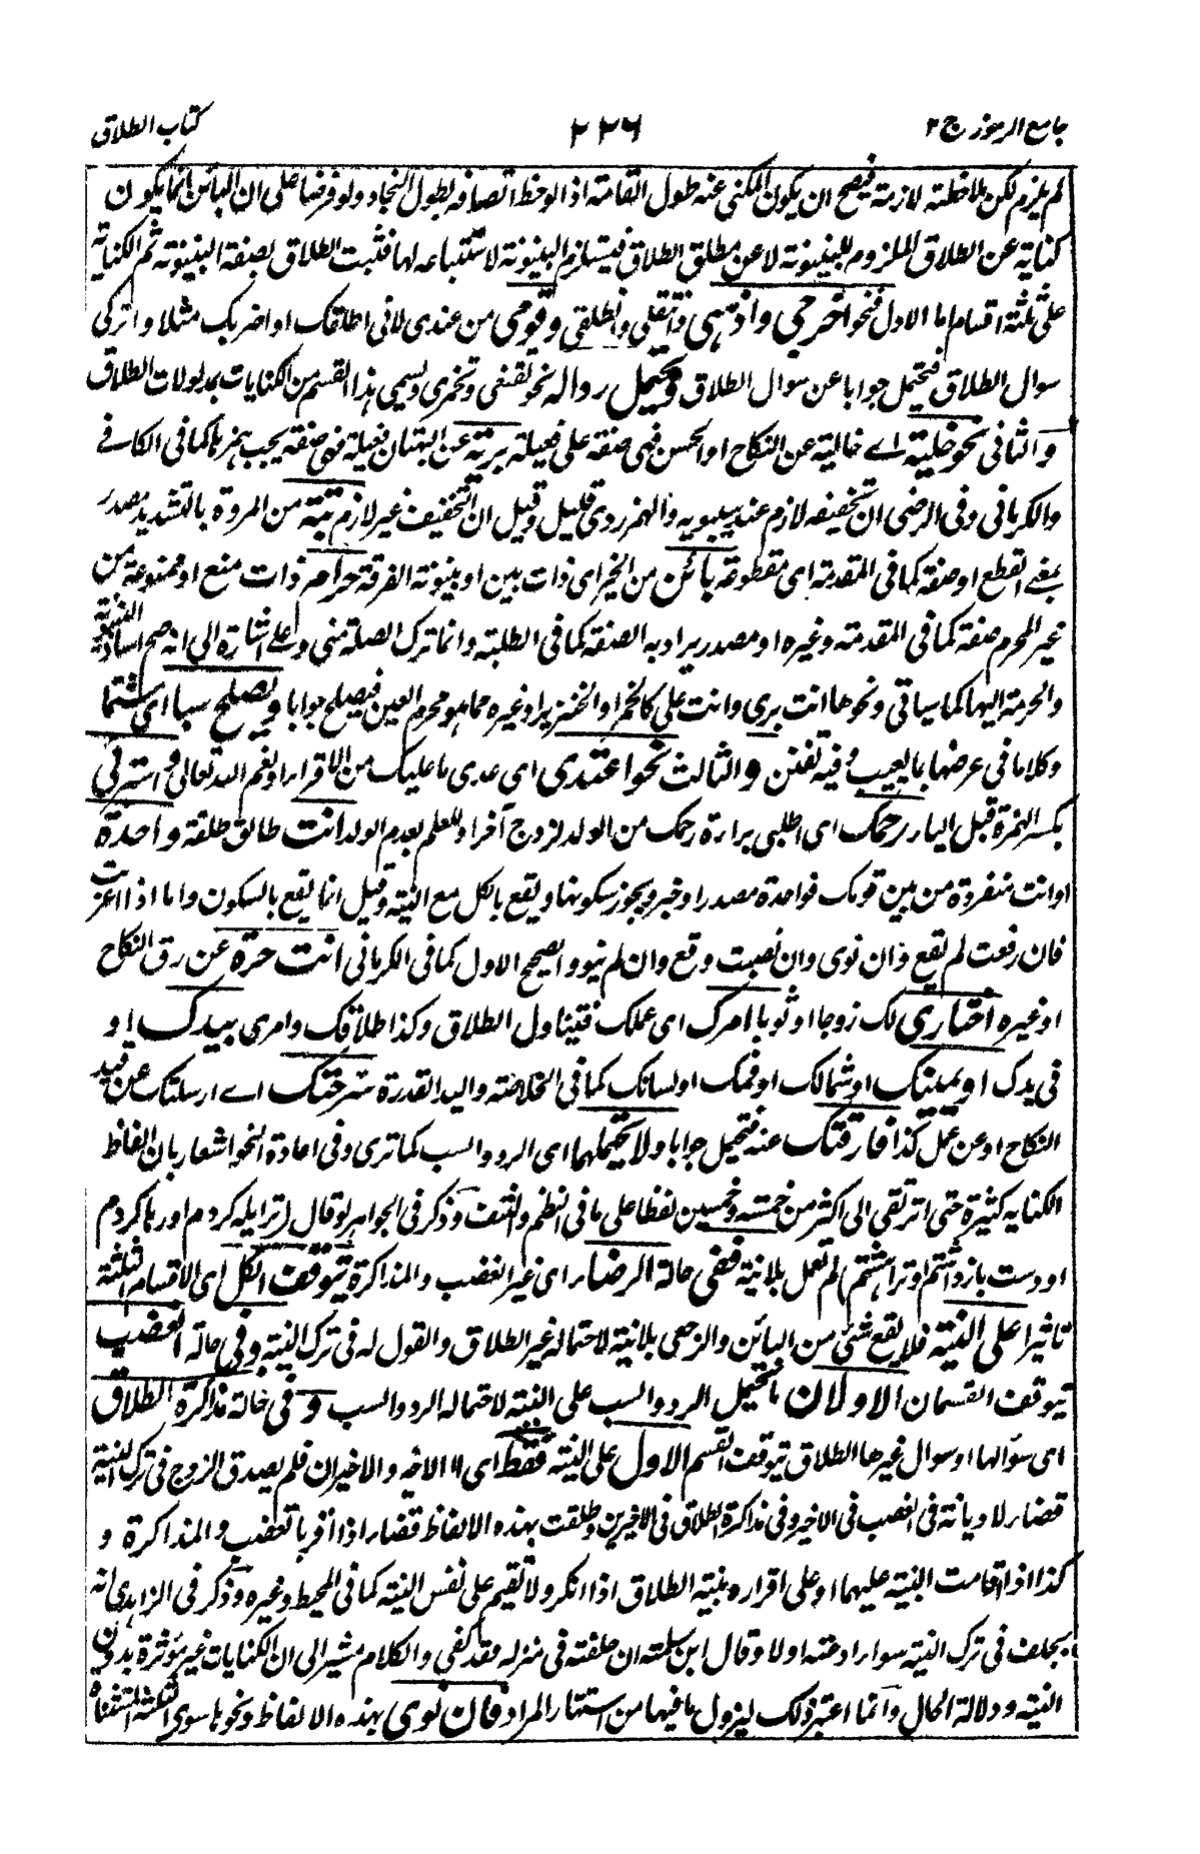 جامع الرموز ج ٢
٢٢٦
كتاب الطلاق
لم يلزم لكن ملاحظته لازمة فيصح ان يكون المكنى عنه طول القامة اذ الوحظ اتصافه بطول النجاد ولو فرضا على ان البائن انما يكون
كناية عن الطلاق الملزوم للبينونة لا عن مطلق الطلاق فيستلزم البينونة لاستتباعه لها فثبت الطلاق بصفة البينونة ثم الكناية
على ثلثة اقسام اما الاول فنحو اخرجي واذهبي وانتقلي وانطلقي وقومي من عندى لانى اطلقك او اضربك مثلا واتركى
سوال الطلاق فيحتمل جوابا عن سوال الطلاق ويحتمل رد اله نحو تقنعى وتخمرى ويسمى هذا القسم من الكنايات بمدلولات الطلاق
والثانى نحو خلية اے خالية عن النكاح او الحسن فهى صفة على فعيلة برية عن البهتان فعيلة فهى صفة يجب همزها كما فى الكافے
والكرمانى وفى الرضى ان تخفيفه لازم عند سيبويه والهمز ردى قليل وقيل ان التخفيف غير لازم بتة من المروة بالتشديد مصدر
بمعنے القطع او صفة كما فى المقدمة اى مقطوعة بائن من الخير اى ذات بين او بينونة الفرقة حرام ذات منع او ممنوعة من
غير المحرم صفة كما فى المقدمة وغيره او مصدر يراد به الصفة كما فى الطلبة وانما ترك الصلة منى وعلى اشارة الى انه صح اسناد البينونة
والحرمة اليها كما سياتى ونحوها انت برى وانت على كالخمر او الخنزير او غيره مما هو محرم العين فيصلح جوابا ويصلح سبا اى شتما
وكلاما فى عرضها بالعيب وفيه تفنن والثالث نحو اعتدى اى عدى ما عليك من الاقراء او نعم الله تعالى واستبرئى
بكسر الهمزة قبل الياء رحمك اى اطلبى براءة رحمك من الولد لزوج آخر او للعلم بعدم الولد انت طالق طلقة واحدة
او انت منفردة من بين قومك فواحدة مصدر او خبر ويجوز سكونها ويقع بالكل مع النية وقيل انما يقع بالسكون واما اذا اعربت
فان رفعت لم يقع وان نوى وان نصبت وقع وان لم ينو والصحيح الاول كما فى الكرمانى انت حرة عن رق النكاح
او غيره اختارى لك زوجا او ثوبا امرك اى عملك فيتناول الطلاق وكذا طلاقك وامرى بيدك او
فى يدك او يمينك او شمالك او فمك او لسانك كما فى الخلاصة واليد القدرة سرحتك اے ارسلتك عن قيد
النكاح او عن عمل كذا فارقتك عنه فيحتمل جوابا ولا يحتملهما اى الرد والسب كما ترى وفى اعادة النحو اشعار بان الفاظ
الكناية كثيرة حتى ترتقى الى اكثر من خمسة وخمسين لفظا على ما فى النظم والنتف وذكر فى الجواهر لو قال ترا يله كردم او رها كردم
او دست باز داشتم او ترا هشتم لم تعمل بلا نية ففى حالة الرضاء اى غير الغضب والمذاكرة يتوقف الكل اى الاقسام الثلثة
تاثيرا على النية فلا يقع شئ من البائن والرجعى بلا نية لاحتماله غير الطلاق والقول له فى ترك النية وفى حالة الغضب
يتوقف القسمان الاولان ما يحتمل الرد والسب على النية لاحتماله الرد والسب وفى حالة مذاكرة الطلاق
اى سؤالها او سوال غيرها الطلاق يتوقف القسم الاول على النية فقط اى لا الاخير والاخيران فلم يصدق الزوج فى ترك النية
قضاء لا ديانة فى الغضب فى الاخير وفى مذاكرة الطلاق فى الاخيرين وطلقت بهذه الالفاظ قضاء اذا اقر بالغضب والمذاكرة و
كذا اذا اقامت البينة عليهما او على اقراره بنية الطلاق اذا انكر ولا تقيم على نفس النية كما فى المحيط وغيره وذكر فى الزاهدى انه
يحلف فى ترك النية سواء ادعته اولا وقال ابن سلمة ان حلفته فى منزله فقد كفى والكلام مشير الى ان الكنايات غير مؤثرة بدون
النية ودلالة الحال وانما اعتبر ذلك ليزول ما فيها من استتار المراد فان نوى بهذه الالفاظ ونحوها سوى الثلثة